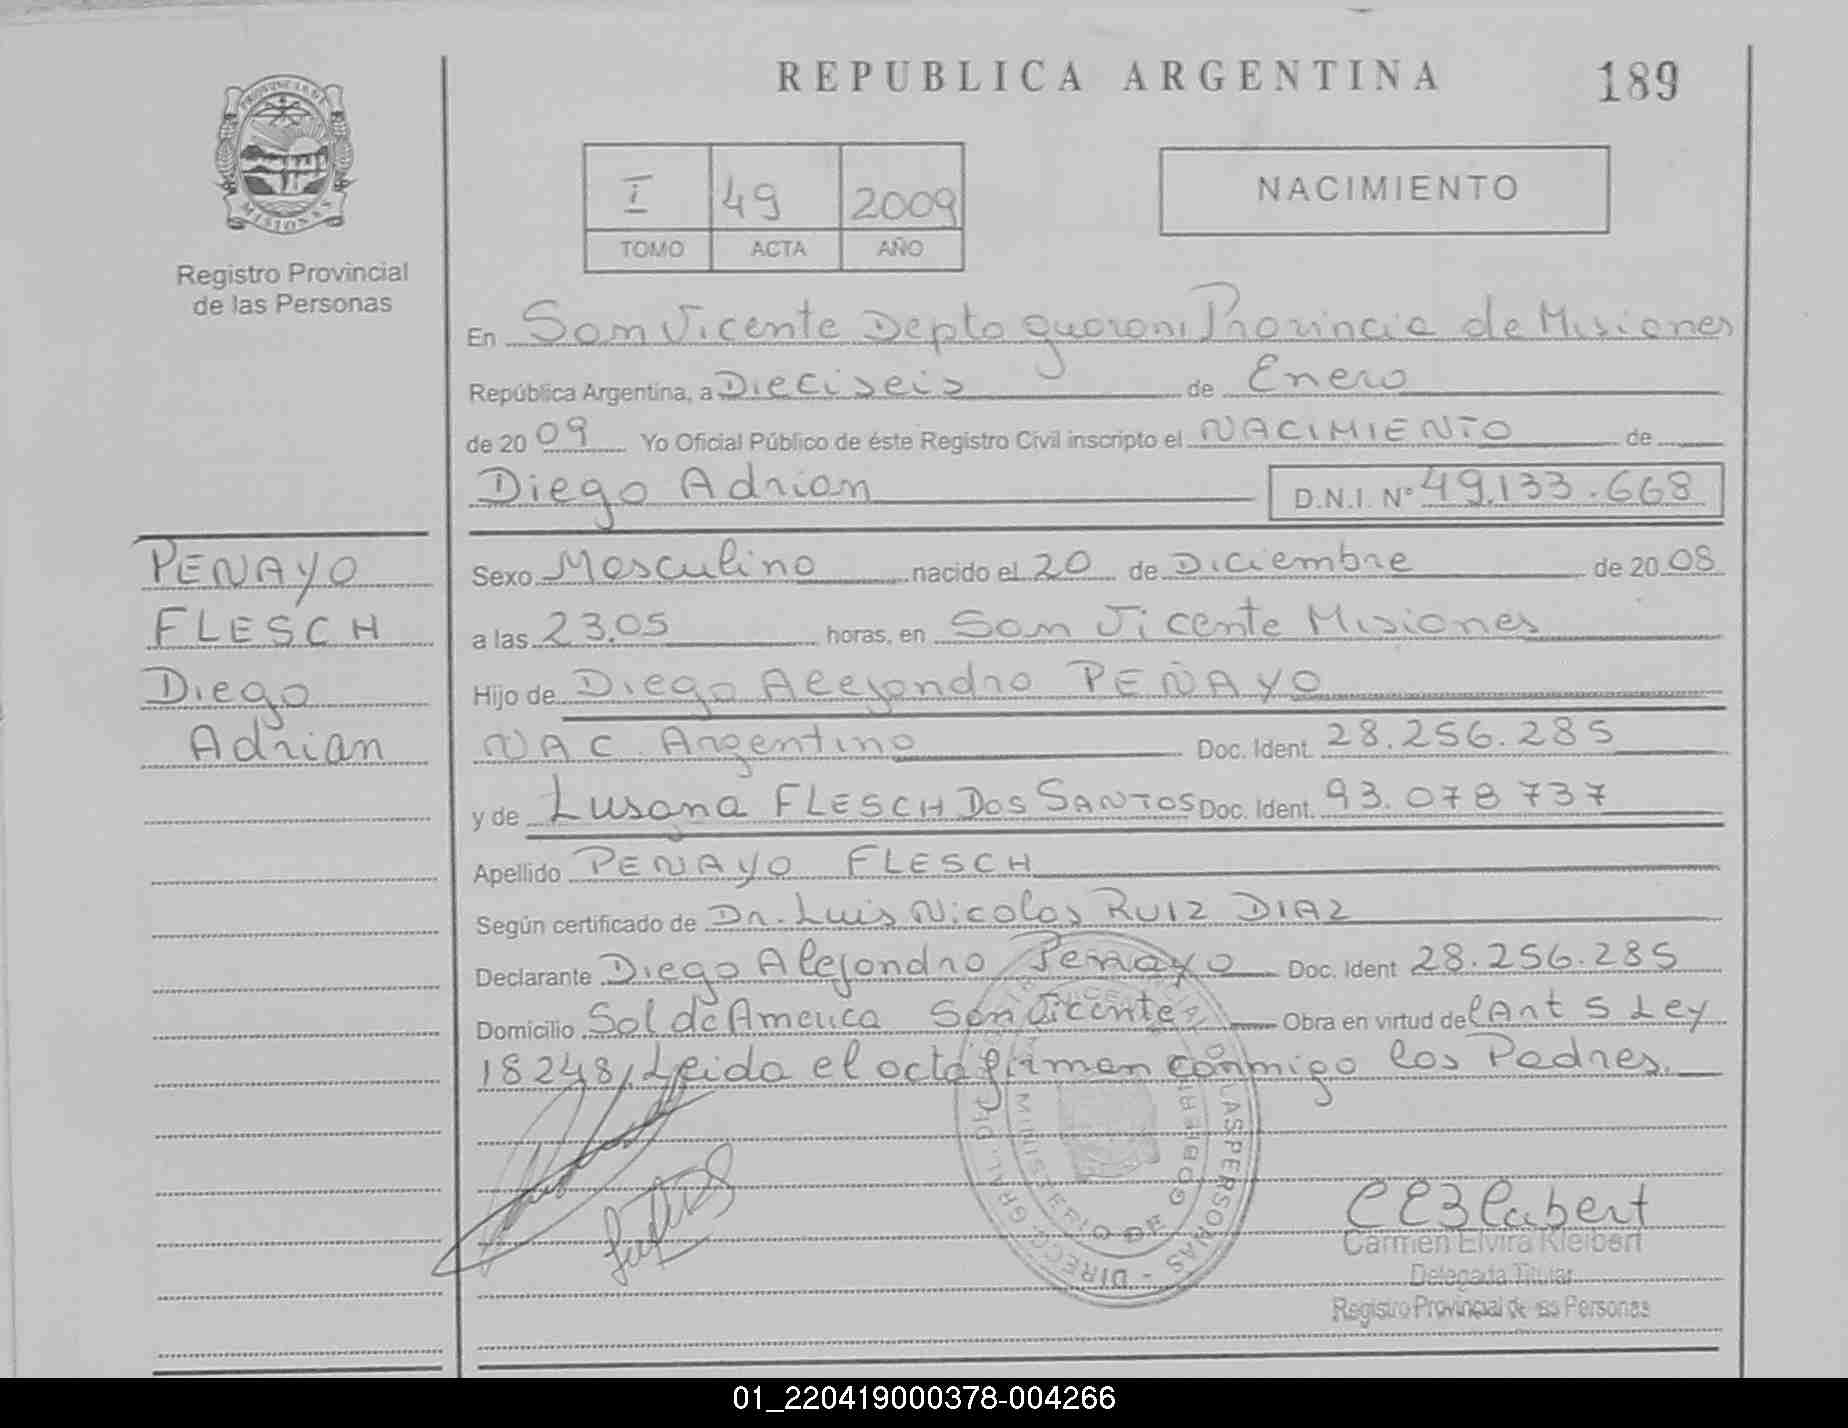 REPUBLICA ARGENTINA
189
PROVINCIA DE
MISIONES
Registro Provincial
de las Personas
I 49 2009
TOMO ACTA AÑO
NACIMIENTO
En San Vicente Depto guarani Provincia de Misiones
República Argentina, a Dieciseis de Enero
de 2009 Yo Oficial Público de éste Registro Civil inscripto el NACIMIENTO de
Diego Adrian D.N.I. Nº 49.133.668
PENAYO
FLESCH
Diego
Adrian
Sexo Masculino nacido el 20 de Diciembre de 2008
a las 23.05 horas, en San Vicente Misiones
Hijo de Diego Alejandro PENAYO
NAC. Argentino Doc. Ident. 28.256.285
y de Lusana FLESCH DOS SANTOS Doc. Ident. 93.078737
Apellido PENAYO FLESCH
Según certificado de Dr. Luis Nicolas RUIZ DIAZ
Declarante Diego Alejandro Penayo Doc. Ident 28.256.285
Domicilio Sol de America San Vicente Obra en virtud del Art 5 Ley
18248, Leida el acta firman conmigo los Padres.
Carmen Elvira Kleibert
Delegada Titular
Registro Provincial de las Personas
01_220419000378-004266